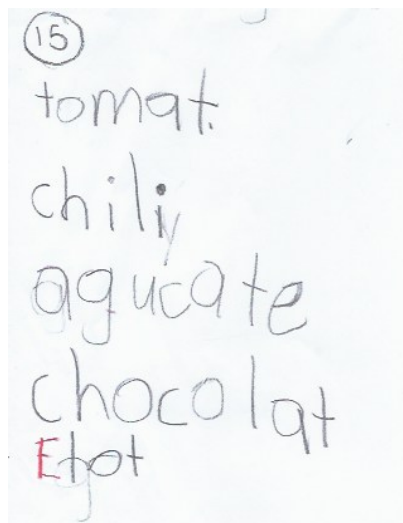 15
tomat.
chili
agucate
chocolat
Elot